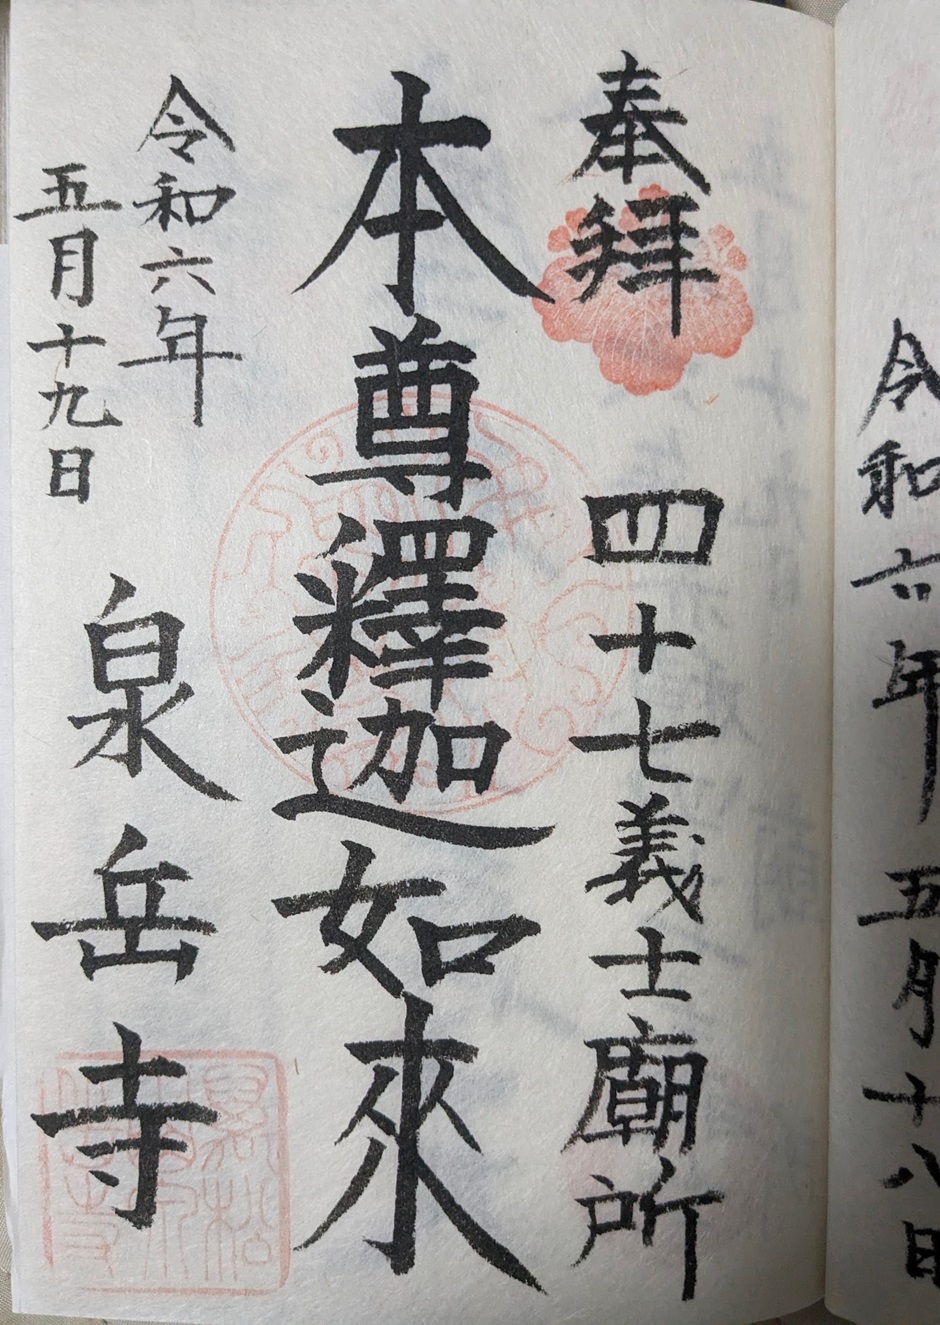 令和六年 五月十八日
奉拜 四十七義士廟所
本尊釋迦如來
令和六年
五月十九日
泉岳寺